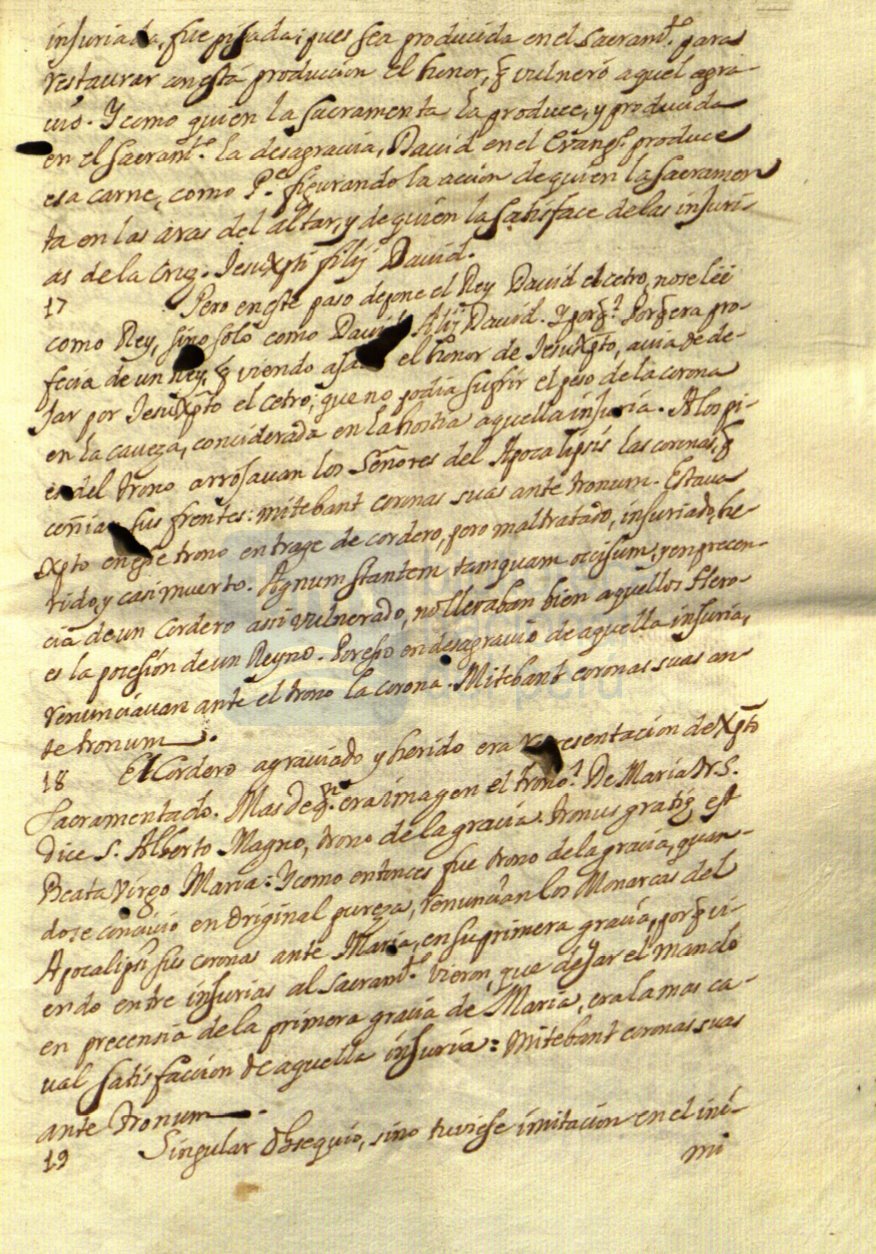 injuriada, fue pisada; pues sea producida en el Sacramto. para
restaurar con esta produccion el honor, q̃ vulneró aquel agra-
vio. Y como quien la sacramenta la produce, y producida
en el Sacramto. la desagravia, David en el Evango. produce
esa carne, como Pe. figurando la accion de quien la sacramen
ta en las aras del altar, y de quien la satisface de las injuri-
as de la Cruz. JesuXpti filij David.
17 Pero en este paso depone el Rey David el cetro, no se lee
como Rey, sino solo como David, filij David. Y porq̃? Porq̃ era pro-
fecia de un Rey, q̃ viendo el honor de JesuXp̃to, avia de de-
Jar por JesuXp̃to el cetro; que no podia sufrir el peso de la corona
en la caveza, conciderada en la hostia aquella injuria. A los pi-
es del trono arroJavan los Señores del Apocalipsis las coronas, q̃
ceñian sus frentes: mitebant coronas suas ante tronum. Estava
Xpto en este trono en trage de cordero, pero maltratado, injuriado, he-
rido, y casi muerto. Agnum stantem tamquam occisum; y en precen-
cia de un Cordero assi vulnerado, no llevaban bien aquellos Hero-
es la pocesión de un Reyno. Por esso en desagravio de aquella injuria,
renunciavan ante el trono la corona. Mitebant coronas suas an-
te tronum.
18 El Cordero agraviado y herido era representacion de Xp̃to
Sacramentado. Mas de qn. era imagen el trono? De Maria N. S.
dice S. Alberto Magno, trono de la gracia. tronus gratiȩ est
Beata Virgo Maria: Y como entonces fue trono de la gracia, quan-
do se concivio en original pureza, renuncian los Monarcas del
Apocalipsi sus coronas ante Maria, en su primera gracia, porq̃ vi-
endo entre injurias al Sacramto. vieron, que deJar el mando
en precensia de la primera gracia de Maria, era la mas ca-
val satisfaccion de aquella injuria: Mitebant coronas suas
ante tronum.
19 Singular obsequio, si no tuviese imitacion en el ini-
mi